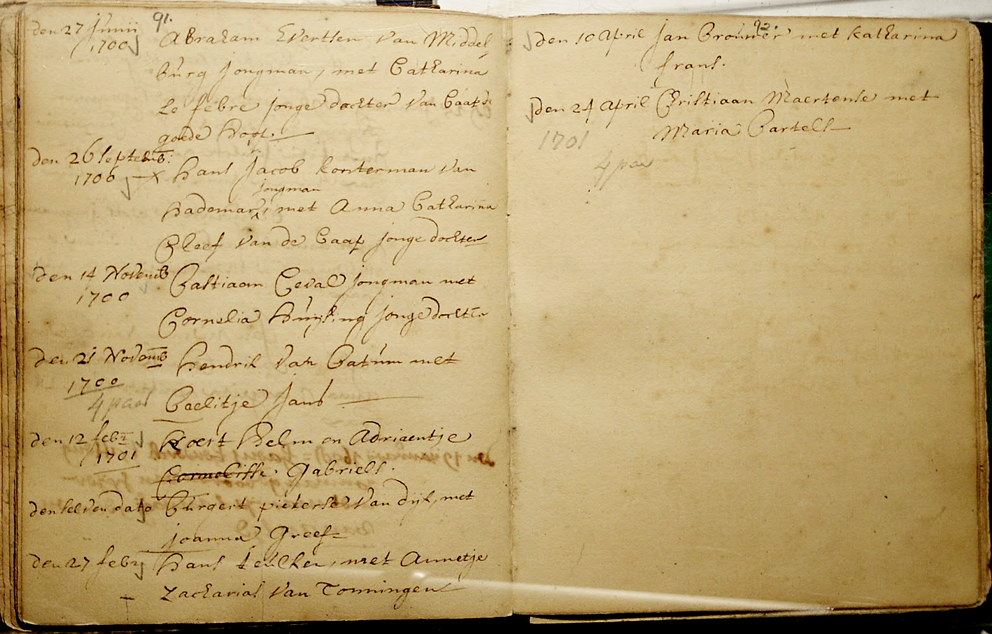 91.
den 27 Junij Abraham Evertsen van Middel
1700 burg Jongman, met Catharina
Le febre jonge dochter van Caap de
goede hoop.
den 26 Septemb: Hans Jacob Konterman van
1706 Jongman
hademar, met Anna Catharina
Cleef van de Caap jonge dochter
den 14 Novemb Bastiaan Ceval jongman met
1700 Cornelia Huijling jonge dochter
den 21 Novemb Hendrik van met
1700
4 paar Baelitje Jans
den 12 feb: Koert Helm en Adriaentje
1701 Gabriels.
den selven dato Burgert pieterse van dijk, met
joanna Greef
den 27 feb: Hans met Annetje
Zacharias van Tonningen
92.
den 10 April Jan Brouwer met Katharina
frans.
den 24 April Christiaan Maertense met
1701 Maria Bartels
4 paar